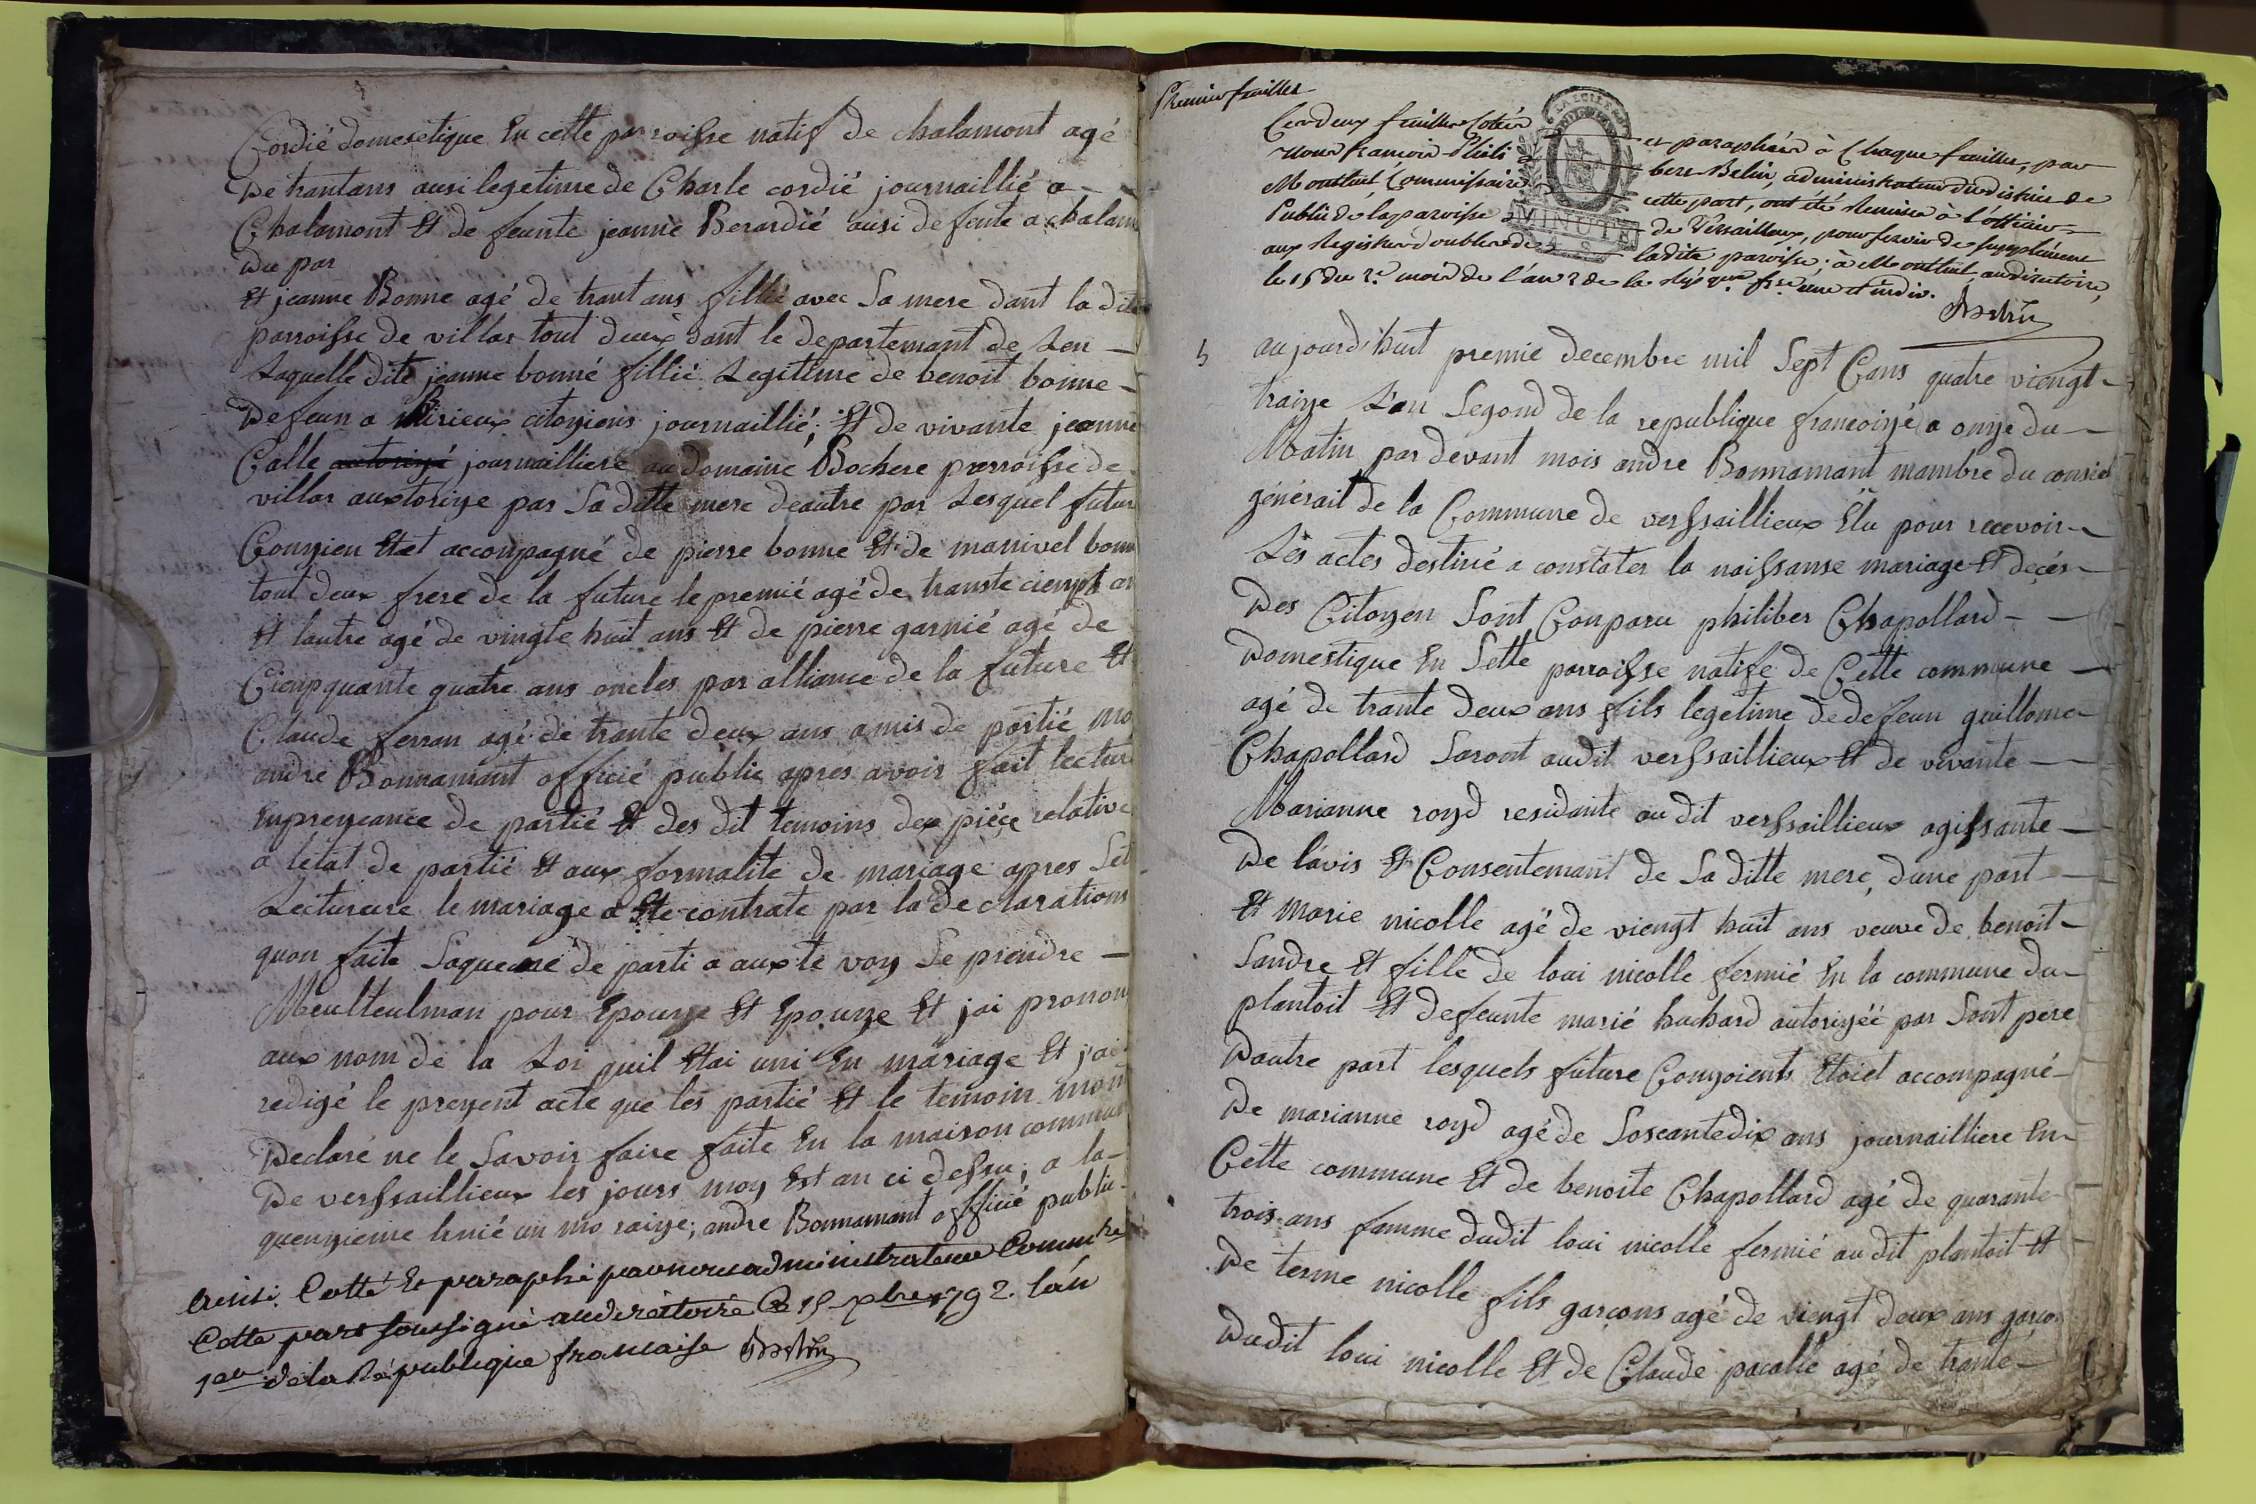 Cordié domesetique En cette parroisse natif de chalamont agé
De trantans ausi legetime de Charle cordié journaillié a
Chalamont Et de feunte jeanne Berardié ausi de fente a chalam
Du par
Et jeanne Bonne agé de trant ans fillie avec Sa mere dant la dite
parroisse de villar tout deux dant le departemant de Len
Laquelle dite jeanne bonne fillié Legitime de benoit bonne
Defeun a Birieux citoyiens journaillié; Et de vivante jeanne
Calle autorizé journailliere au domaine Bochere parroisse de
villar auxtorize par Sa ditte mere deautre par Lesquel futur
Conyien Etet accompagné de pierre bonne Et de manivel bonn
tout deux frere de la future le premié agé de trante cienpt an
Et lautre agé de vingte huit ans Et de pierre garnié agé de
Cienpquante quatre ans oncles par alliance de la future Et
Claude ferran agé de trante deux ans amis de partié mo
andré Bonnamant officié public apres avoir fait lecture
Enprezance de partié Et des dit temoins dex pièce relative
a létat de partié Et aux formalite de mariage apres Set
Lectureure le mariage a Ete contrate par la declarations
quon faite Saquene de parti a aux te voy Se prendre
Meulteulman pour Epouze Et Epouze Et jai pronon
aux nom de la Loi quil Etai uni En mariage Et j'ai
redigé le prezent acte que les partié Et le temoin mont
Declaré ne le Savoir faire faite En la maison commun
De verssaillieux les jours moy Est an ci dessu; a la
andre Bonnamant officié public
Ainsi Cotté Et paraphé par nous administrateur Commre
Cette part soussigné au directoire Ce 15 xbre 1792. l'an
1er de la République francaise Belin
Premier feuillet
Ces deux feuilles Cotées et paraphées à Chaque feuille, par
Nous francois Philibert Belin, administrateur du district de
Montluel, Commissaire cette part, ont été Remises à l'officier
Public de la paroisse de Versailleux, pour servir de supplément
aux Registres doubles de ladite paroisse; à Montluel, au directoire,
le 15 du 2e mois de l'an 2 de la Répque frse une et indiv.
Belin
MINUTE
5
aujourd'huit premie decembre mil Sept Cans quatre viengt
traize L'an Segond de la republique francoizé a onze du
Matin par devant mois andre Bonnamant mambre du consiel
générait de la Commune de verssaillieux Elu pour recevoir
Lès actes destiné a constater la naissanse mariage Et decés
Des Citoyen Sont Conparu philiber Chapollard
Domestique En Sette parroisse natife de Cette commune
agé de trante deux ans fils legetime de defeun guillome
Chapollard Saront audit verssaillieux Et de vivante
Marianne royd residante au dit verssaillieux agissante
De lávis Et Consentemant de Sa ditte mere, dune part
Et marie nicolle agé de viengt huit ans veuve de benoit
Sandre Et fille de loui nicolle fermié En la commune du
plantoit Et defeunte marié huchard autorizéé par Sont pere
Dautre part lesquels future Conyoients Etoiet accompagné
De marianne royd agé de Soscantedix ans journailliere En
Cette commune Et de benoite Chapollard agé de quarante
trois ans famme dudit loui nicolle fermié au dit plantoit Et
De terme nicolle fils garcons agé de viengt deux ans garcon
Dudit loui nicolle Et de Claude pacalle agé de trante